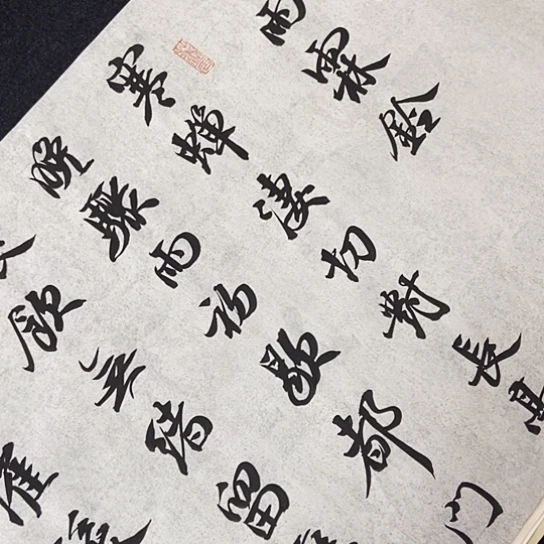 雨霖鈴
寒蟬淒切對長
晚驟雨初歇都門
飲無緒留
催